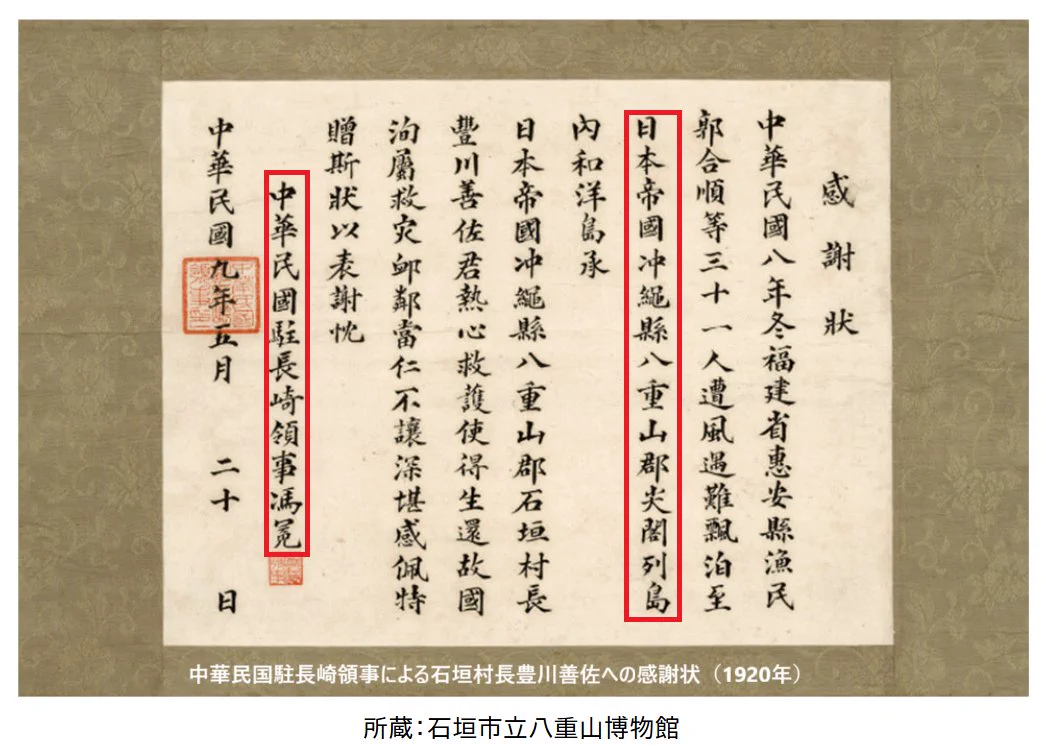 感謝狀
中華民國八年冬福建省惠安縣漁民
郭合順等三十一人遭風遇難飄泊至
日本帝國冲繩縣八重山郡尖閣列島
內和洋島承
日本帝國冲繩縣八重山郡石垣村長
豐川善佐君熱心救護使得生還故國
洵屬救灾卹鄰當仁不讓深堪感佩特
贈斯狀以表謝忱
中華民國駐長崎領事馮冕
中華民國九年五月二十日
中華民国駐長崎領事による石垣村長豊川善佐への感謝状（1920年）
所蔵：石垣市立八重山博物館